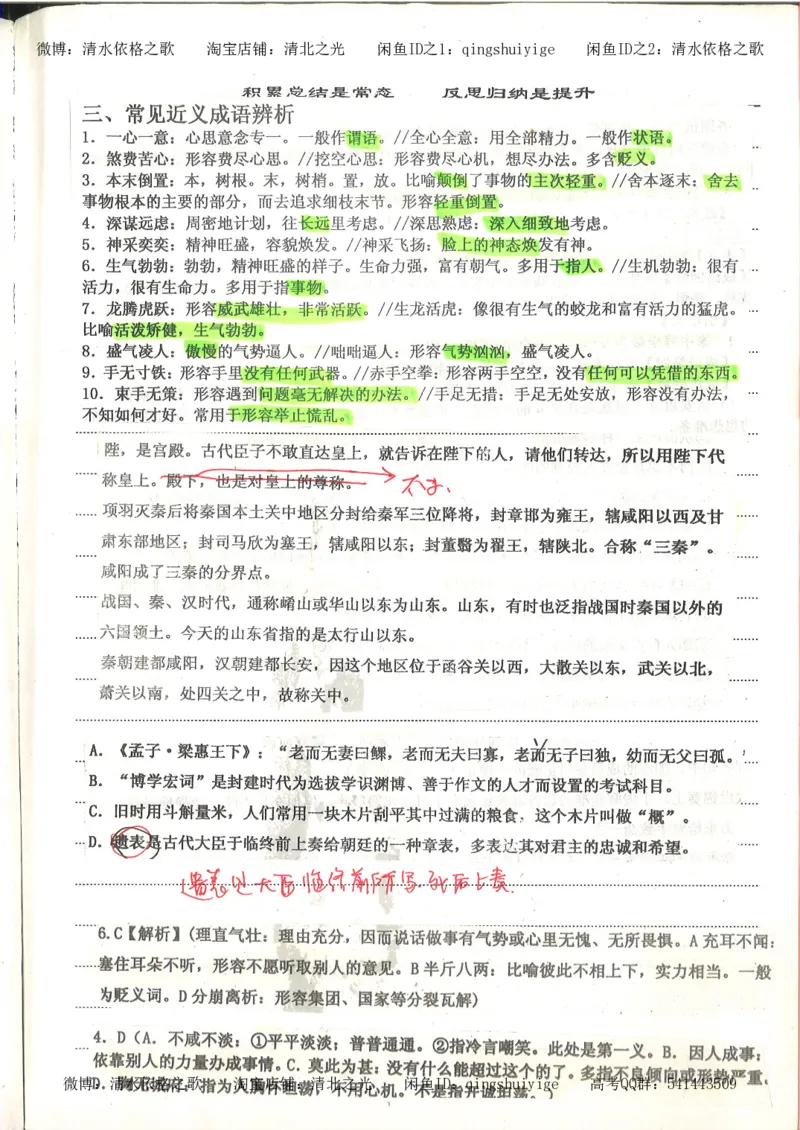 微博：清水依格之歌 淘宝店铺：清北之光 闲鱼ID之1：qingshuiyige 闲鱼ID之2：清水依格之歌
积累总结是常态 反思归纳是提升
三、常见近义成语辨析
1．一心一意：心思意念专一。一般作谓语。//全心全意：用全部精力。一般作状语。
2．煞费苦心：形容费尽心思。//挖空心思：形容费尽心机，想尽办法。多含贬义。
3．本末倒置：本，树根。末，树梢。置，放。比喻颠倒了事物的主次轻重。//舍本逐末：舍去
事物根本的主要的部分，而去追求细枝末节。形容轻重倒置。
4．深谋远虑：周密地计划，往长远里考虑。//深思熟虑：深入细致地考虑。
5．神采奕奕：精神旺盛，容貌焕发。//神采飞扬：脸上的神态焕发有神。
6．生气勃勃：勃勃，精神旺盛的样子。生命力强，富有朝气。多用于指人。//生机勃勃：很有
活力，很有生命力。多用于指事物。
7．龙腾虎跃：形容威武雄壮，非常活跃。//生龙活虎：像很有生气的蛟龙和富有活力的猛虎。
比喻活泼矫健，生气勃勃。
8．盛气凌人：傲慢的气势逼人。//咄咄逼人：形容气势汹汹，盛气凌人。
9．手无寸铁：形容手里没有任何武器。//赤手空拳：形容两手空空，没有任何可以凭借的东西。
10．束手无策：形容遇到问题毫无解决的办法。//手足无措：手足无处安放，形容没有办法，
不知如何才好。常用于形容举止慌乱。
陛，是宫殿。古代臣子不敢直达皇上，就告诉在陛下的人，请他们转达，所以用陛下代
称皇上。殿下，也是对皇上的尊称。 太子、
项羽灭秦后将秦国本土关中地区分封给秦军三位降将，封章邯为雍王，辖咸阳以西及甘
肃东部地区；封司马欣为塞王，辖咸阳以东；封董翳为翟王，辖陕北。合称“三秦”。
咸阳成了三秦的分界点。
战国、秦、汉时代，通称崤山或华山以东为山东。山东，有时也泛指战国时秦国以外的
六国领土。今天的山东省指的是太行山以东。
秦朝建都咸阳，汉朝建都长安，因这个地区位于函谷关以西，大散关以东，武关以北，
萧关以南，处四关之中，故称关中。
A．《孟子·梁惠王下》：“老而无妻曰鳏，老而无夫曰寡，老而无子曰独，幼而无父曰孤。”
B．“博学宏词”是封建时代为选拔学识渊博、善于作文的人才而设置的考试科目。
C．旧时用斗斛量米，人们常用一块木片刮平其中过满的粮食，这个木片叫做“概”。
D．遗表是古代大臣于临终前上奏给朝廷的一种章表，多表达其对君主的忠诚和希望。
遗表是大臣临终前所写，死后上奏.
6.C【解析】(理直气壮：理由充分，因而说话做事有气势或心里无愧、无所畏惧。A 充耳不闻：
塞住耳朵不听，形容不愿听取别人的意见。B 半斤八两：比喻彼此不相上下，实力相当。一般
为贬义词。D 分崩离析：形容集团、国家等分裂瓦解)
4．D（A．不咸不淡：①平平淡淡；普普通通。②指冷言嘲笑。此处是第一义。B．因人成事：
依靠别人的力量办成事情。C．莫此为甚：没有什么能超过这个的了。多指不良倾向或形势严重。
D．胸无城府：指为人胸怀坦荡，不用心机。不是指开诚坦荡。）
微博：清水依格之歌 淘宝店铺：清北之光 闲鱼ID：qingshuiyige 高考QQ群：541443509